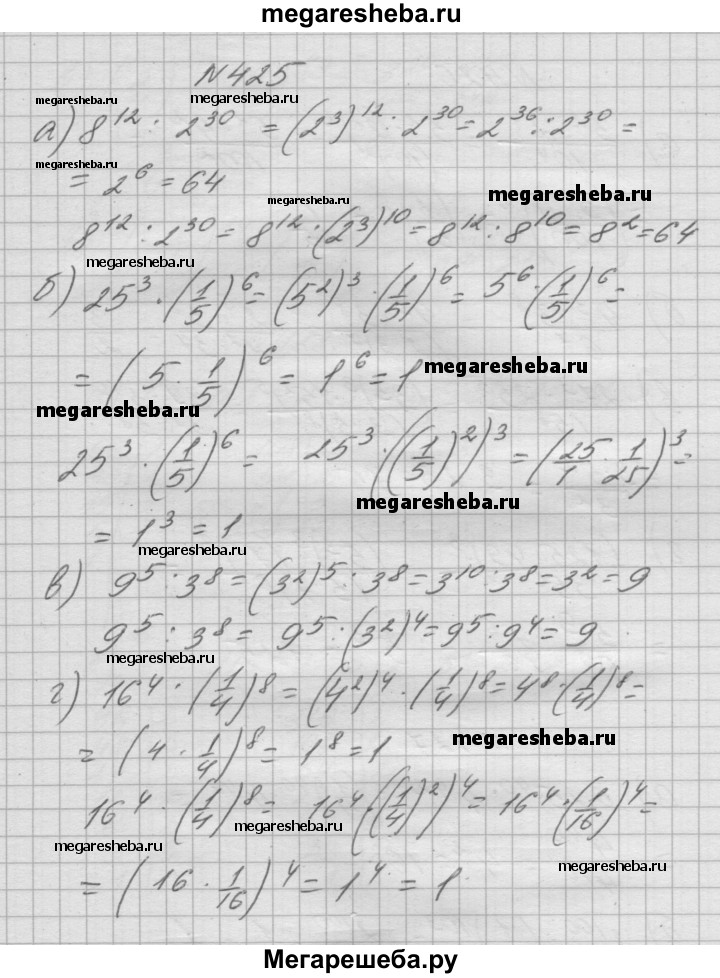 megaresheba.ru
N 425
megaresheba.ru
megaresheba.ru
а) 8^12 : 2^30 = (2^3)^12 : 2^30 = 2^36 : 2^30 =
= 2^6 = 64
megaresheba.ru
megaresheba.ru
8^12 : 2^30 = 8^12 : (2^3)^10 = 8^12 : 8^10 = 8^2 = 64
megaresheba.ru
б) 25^3 · (1/5)^6 = (5^2)^3 · (1/5)^6 = 5^6 · (1/5)^6 =
= (5 · 1/5)^6 = 1^6 = 1
megaresheba.ru
megaresheba.ru
25^3 · (1/5)^6 = 25^3 · ((1/5)^2)^3 = (25/1 · 1/25)^3 =
megaresheba.ru
= 1^3 = 1
megaresheba.ru
в) 9^5 : 3^8 = (3^2)^5 : 3^8 = 3^10 : 3^8 = 3^2 = 9
9^5 : 3^8 = 9^5 : (3^2)^4 = 9^5 : 9^4 = 9
megaresheba.ru
г) 16^4 · (1/4)^8 = (4^2)^4 · (1/4)^8 = 4^8 · (1/4)^8 =
= (4 · 1/4)^8 = 1^8 = 1
megaresheba.ru
16^4 · (1/4)^8 = 16^4 · ((1/4)^2)^4 = 16^4 · (1/16)^4 =
megaresheba.ru
megaresheba.ru
megaresheba.ru
= (16 · 1/16)^4 = 1^4 = 1
Мегарешеба.ру